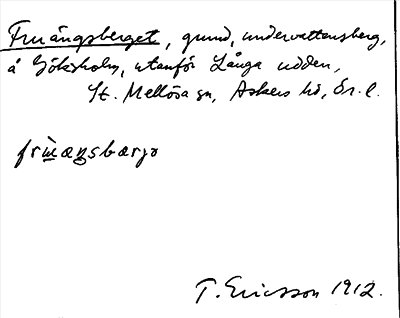 Fruängsberget, grund, undervattensberg,
å Göksholm, utanför Långa udden,
St. Mellösa sn, Askers hd, Ör. l.
T. Ericsson 1912.